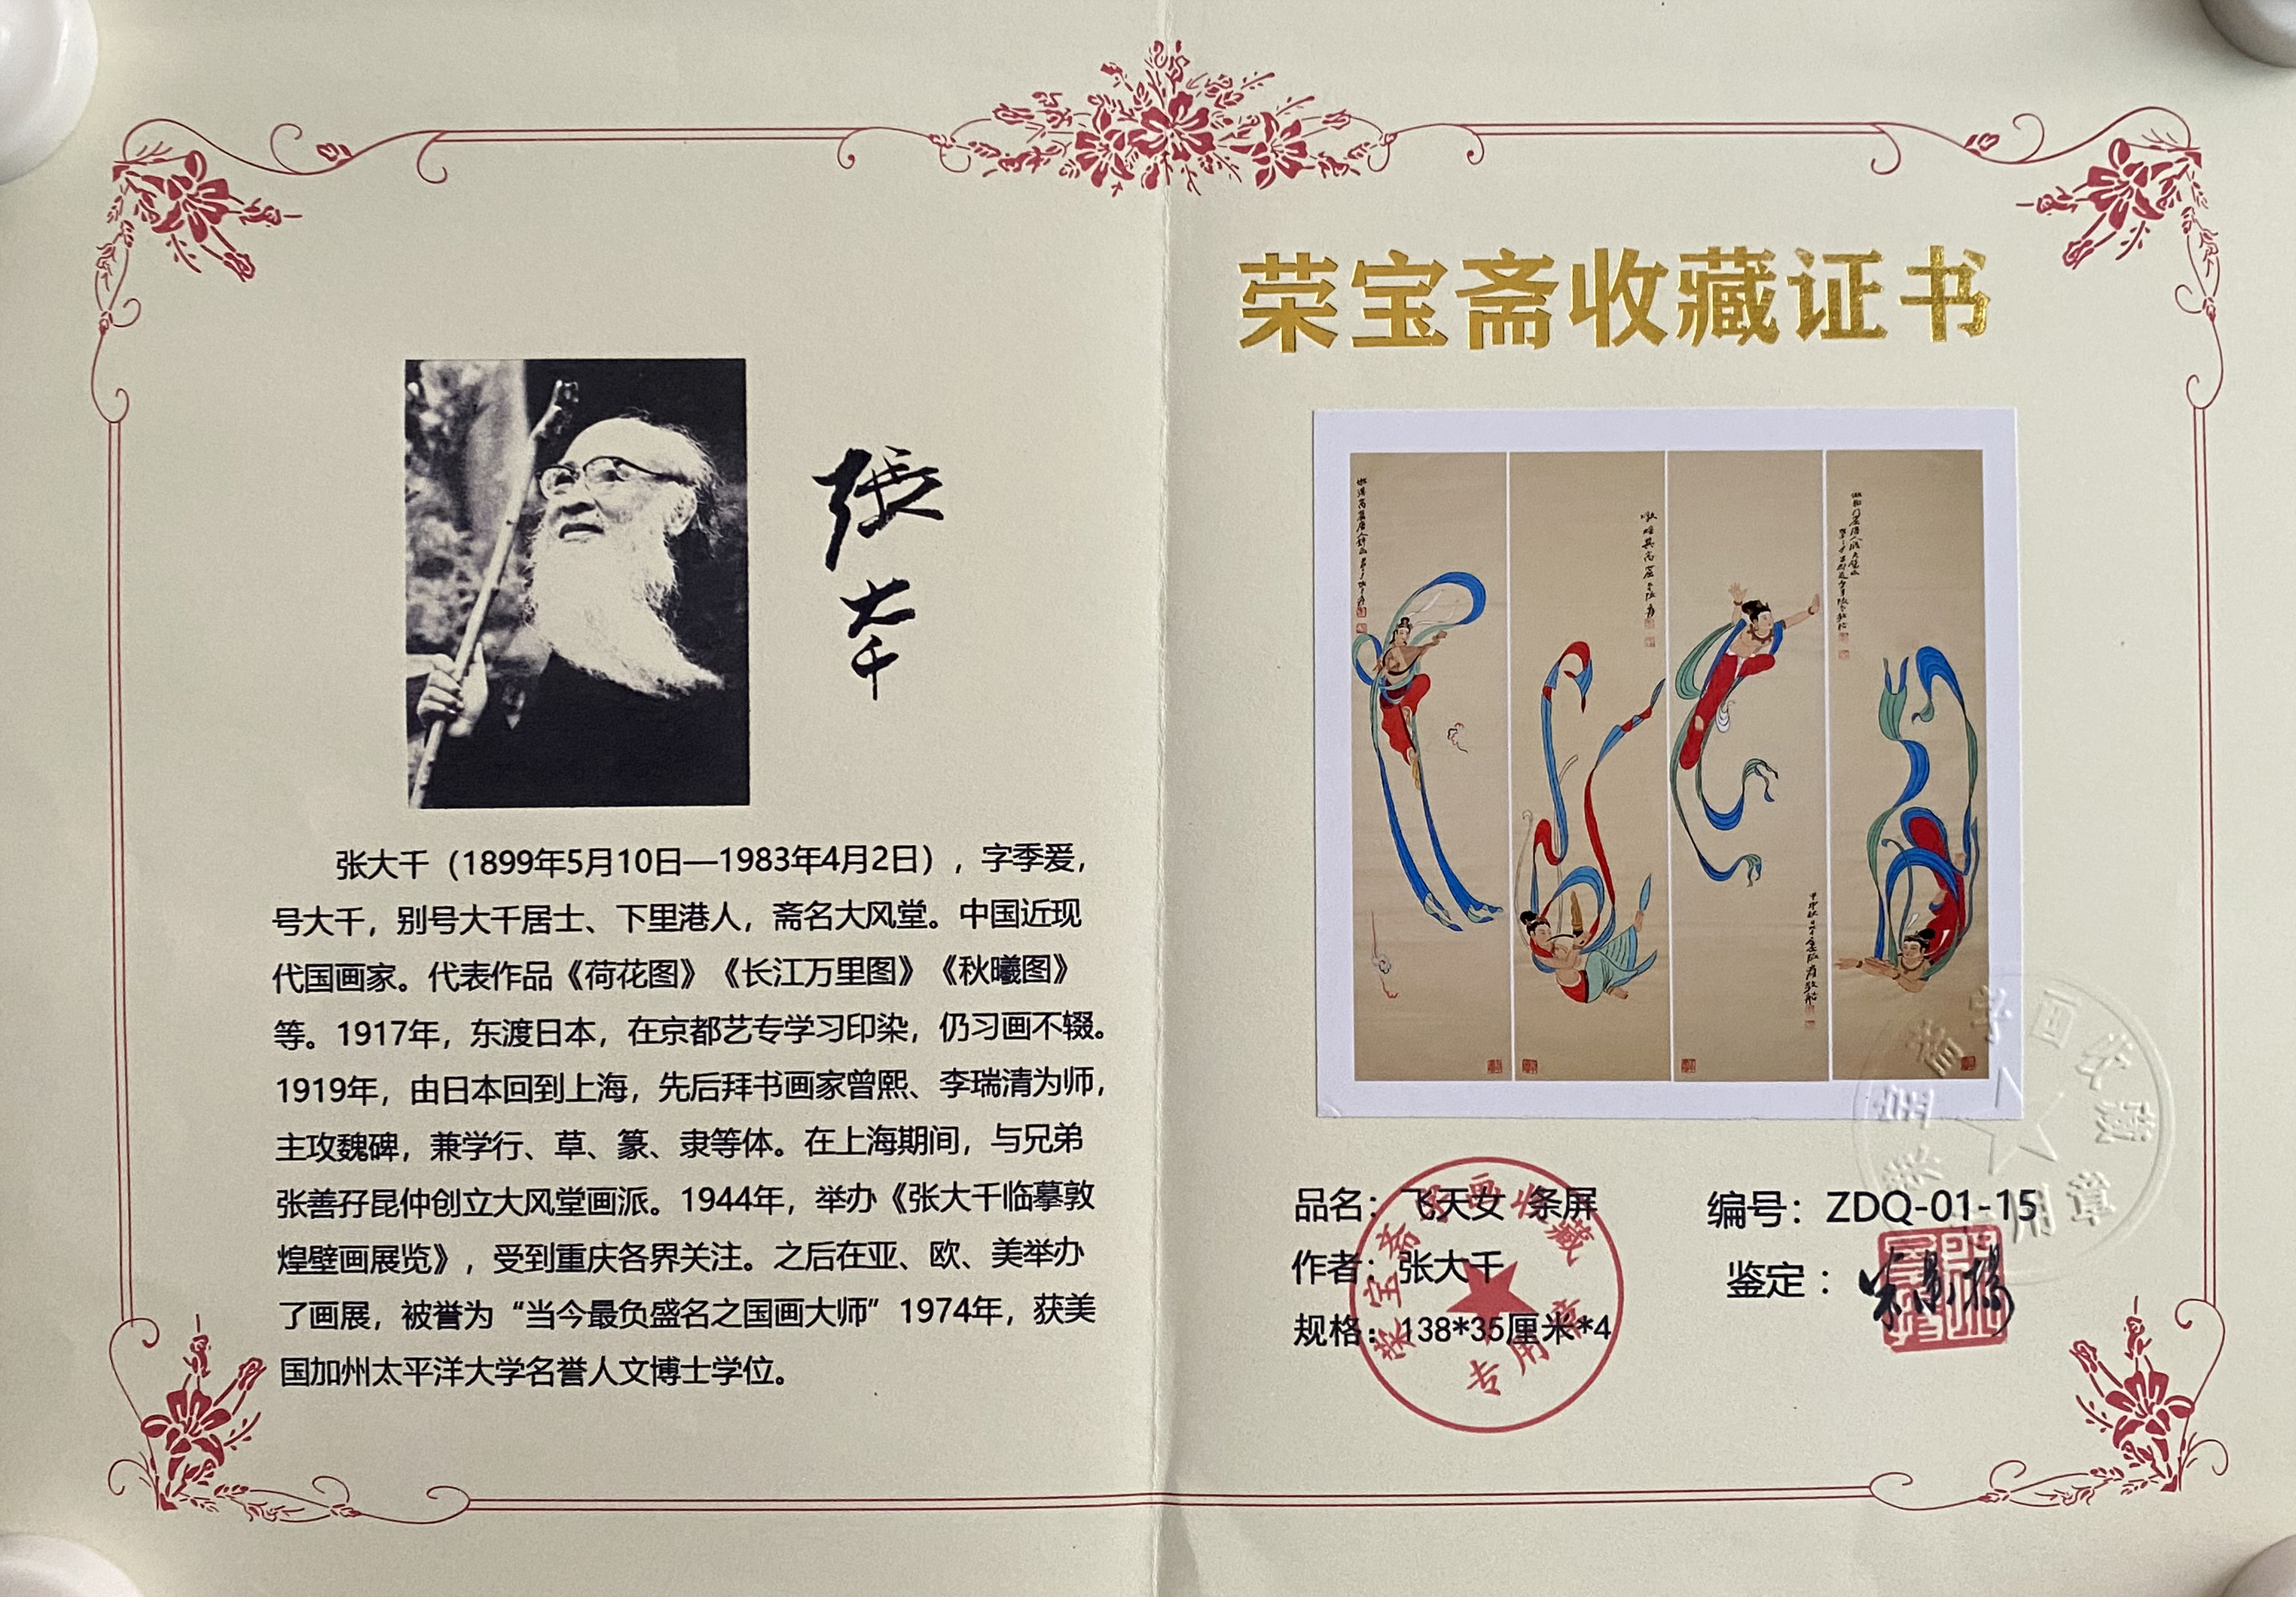 張大千
张大千（1899年5月10日—1983年4月2日），字季爰，
号大千，别号大千居士、下里港人，斋名大风堂。中国近现
代国画家。代表作品《荷花图》《长江万里图》《秋曦图》
等。1917年，东渡日本，在京都艺专学习印染，仍习画不辍。
1919年，由日本回到上海，先后拜书画家曾熙、李瑞清为师，
主攻魏碑，兼学行、草、篆、隶等体。在上海期间，与兄弟
张善孖昆仲创立大风堂画派。1944年，举办《张大千临摹敦
煌壁画展览》，受到重庆各界关注。之后在亚、欧、美举办
了画展，被誉为“当今最负盛名之国画大师”1974年，获美
国加州太平洋大学名誉人文博士学位。
荣宝斋收藏证书
品名：飞天女 条屏
作者：张大千
规格：138*35厘米*4
编号：ZDQ-01-15
鉴定：
荣宝斋书画收藏
专用章